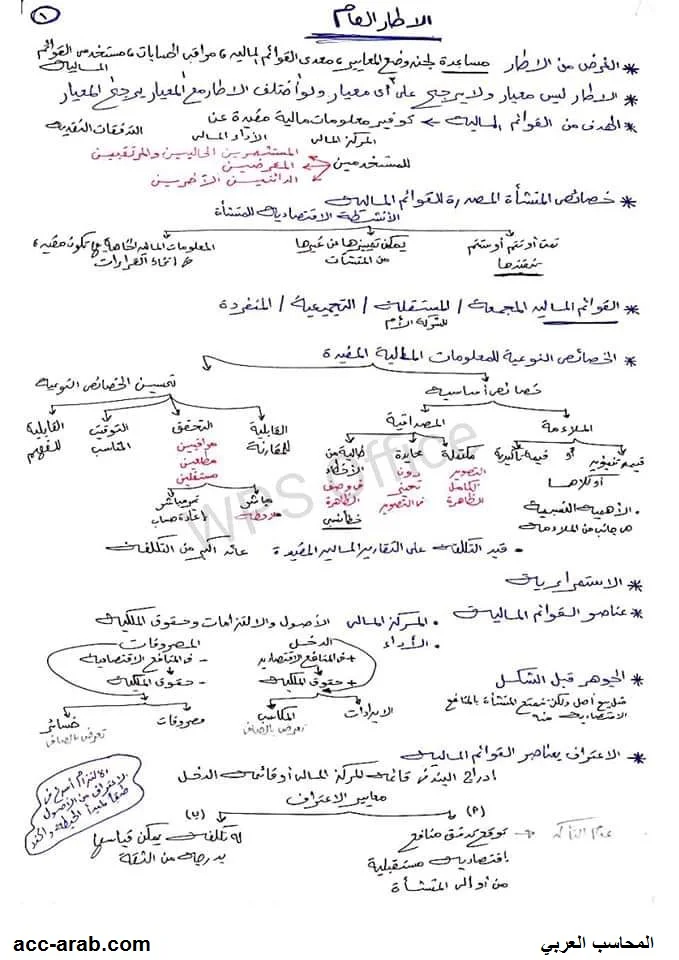 ١
الإطار العام
* الغرض من الإطار مساعدة لجنة وضع المعايير، معدى القوائم المالية، مراقبى الحسابات، مستخدمى القوائم المالية
* الإطار ليس معيار ولا يرجح على أى معيار ولو اختلف الإطار مع المعيار يرجح المعيار
* الهدف من القوائم المالية ← توفير معلومات مالية مفيدة عن
المركز المالى الأداء المالى التدفقات النقدية
للمستخدمين
المستثمرين الحاليين والمرتقبين
المقرضين
الدائنين الآخرين
* خصائص المنشأة المصدرة للقوائم المالية
الأنشطة الاقتصادية للمنشأة
تمت أو تتم أو ستتم يمكن تمييزها عن غيرها المعلومات المالية الخاصة بها تكون مفيدة
تنفيذها من المنشآت فى اتخاذ القرارات
* القوائم المالية المجمعة / المستقلة / التجميعية / المنفردة
للشركة الأم
* الخصائص النوعية للمعلومات المالية المفيدة
خصائص أساسية تحسين الخصائص النوعية
الملاءمة المصداقية القابلية للمقارنة التحقق التوقيت المناسب القابلية للفهم
قيمة تنبؤية أو قيمة تأكيدية
أو كلاهما
مكتملة محايدة خالية من الأخطاء
التصوير الكامل للظاهرة
دون تحيز فى التصوير
فى وصف الظاهرة
مراقبين مطلعين مستقلين
مباشر غير مباشر
ملاحظة إعادة حساب
• الأهمية النسبية
هى جانب من الملاءمة
• قيد التكلفة على التقارير المالية المفيدة عائد أكبر من التكلفة
* الاستمرارية
* عناصر القوائم المالية • المركز المالى الأصول والالتزامات وحقوق الملكية
• الأداء الدخل المصروفات
+ فى المنافع الاقتصادية - فى المنافع الاقتصادية
+ حقوق الملكية - حقوق الملكية
الإيرادات المكاسب مصروفات خسائر
تعرض بالصافى تعرض بالصافى
* الجوهر قبل الشكل
الاقتصادية منه
* الاعتراف بعناصر القوائم المالية
إدراج البند فى قائمة المركز المالى أو قائمة الدخل
معايير الاعتراف
(أ) (ب)
توقع تدفق منافع له تكلفة يمكن قياسها
اقتصادية مستقبلية بدرجة من الثقة
من أو إلى المنشأة
الالتزام أسرع فى
الاعتراف من الأصول
طبقاً لمبدأ الحيطة والحذر
WPS Office
acc-arab.com
المحاسب العربي